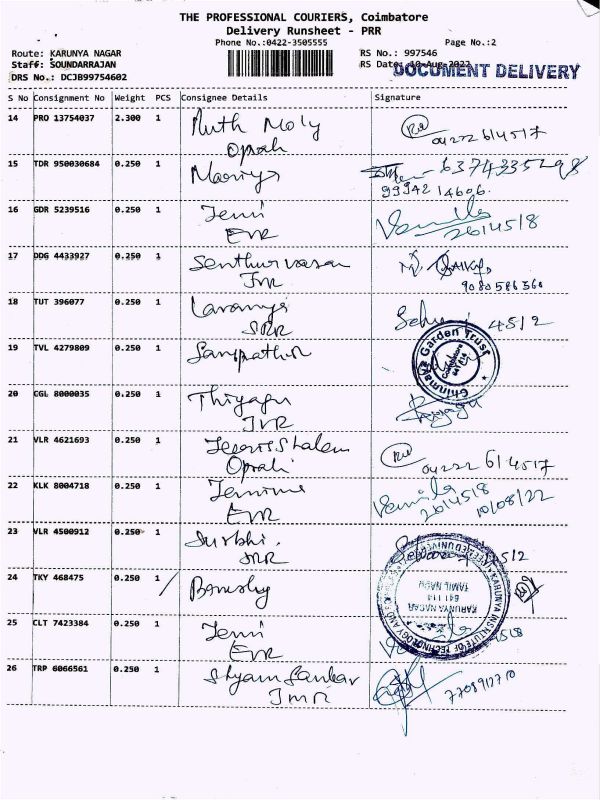 THE PROFESSIONAL COURIERS, Coimbatore
Delivery Runsheet - PRR
Phone No.:0422-3505555 Page No.:2
Route: KARUNYA NAGAR RS No.: 997546
Staff: SOUNDARRAJAN RS Date: 10-Aug-2022
DOCUMENT DELIVERY
DRS No.: DCJB99754602
S No Consignment No Weight PCS Consignee Details Signature
14 PRO 13754037 2.300 1 Ruth Moly
Oprah 04222614517
15 TDR 950030684 0.250 1
9994214606.
16 GDR 5239516 0.250 1 Jemi Vemila
EVR 2614518
17 DDG 4433927 0.250 1 Senthurvasan
JVR 9080586360
18 TUT 396077 0.250 1 4512
SRR
19 TVL 4279809 0.250 1 Chinmaya Garden Trust
Coimbatore
20 CGL 8000035 0.250 1 Thiyagu
JVR
21 VLR 4621693 0.250 1
04222 614517
22 KLK 8004718 0.250 1 Vemila
EVR 2614518 10/08/22
23 VLR 4500912 0.250 1 Surbhi.
SRR
24 TKY 468475 0.250 1
KARUNYA INSTITUTE OF TECHNOLOGY AND
KARUNYA NAGAR
641 114
TAMIL NADU
25 CLT 7423384 0.250 1 Jemi
EVR
26 TRP 6066561 0.250 1 Shyam Sankar
JMR